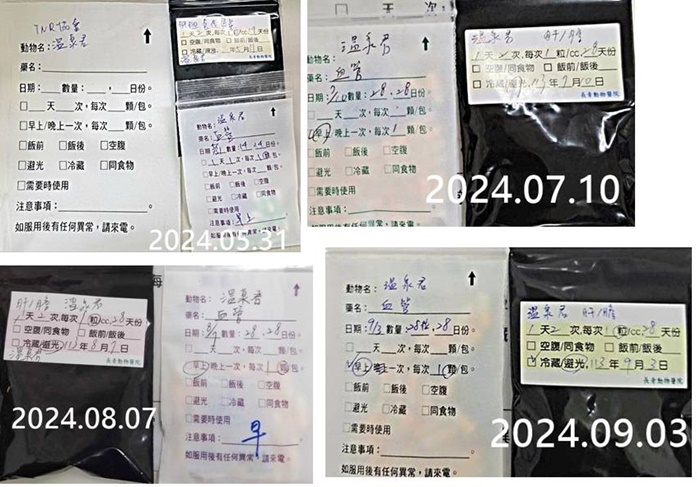 TNR協會
動物名：溫泉君
藥名：
日期：數量：，日份。
□天次，每次顆/包。
□早上/晚上一次，每次顆/包。
□飯前 □飯後 □空腹
□避光 □冷藏 □同食物
□需要時使用
注意事項：
如服用後有任何異常，請來電。
1天2次，每次1粒/cc
□空腹/同食物 □飯前/飯後
長青動物醫院
動物名：溫泉君
藥名：血管
□飯前 □飯後 □空腹
□避光 □冷藏 □同食物
□需要時使用
注意事項：早上
如服用後有任何異常，請來電。
2024.05.31
動物名：溫泉君
藥名：血管
日期：7/10數量：28，28日份。
□天次，每次顆/包。
□早上/晚上一次，每次1顆/包。
□飯前 □飯後 □空腹
□避光 □冷藏 □同食物
□需要時使用
注意事項：
如服用後有任何異常，請來電。
溫泉君 肝/膽
1天2次，每次1粒/cc，28天份
□空腹/同食物 □飯前/飯後
□冷藏/避光，113年7月10日
長青動物醫院
2024.07.10
肝/膽 溫泉君
1天2次，每次1粒/cc，28天份
□空腹/同食物 □飯前/飯後
□冷藏/避光，113年8月7日
溫泉君
長青動物醫院
動物名：溫泉君
藥名：血管
日期：8/7數量：28，28日份。
□天次，每次顆/包。
□早上/晚上一次，每次1顆/包。
□飯前 □飯後 □空腹
□避光 □冷藏 □同食物
□需要時使用
注意事項：早
如服用後有任何異常，請來電。
2024.08.07
動物名：溫泉君
藥名：血管
日期：9/3數量：28粒，28日份。
□天次，每次顆/包。
□早上/晚上一次，每次1顆/包。
□飯前 □飯後 □空腹
□避光 □冷藏 □同食物
□需要時使用
注意事項：
如服用後有任何異常，請來電。
溫泉君 肝/膽
1天2次，每次1粒/cc，28天份
□空腹/同食物 □飯前/飯後
□冷藏/避光，113年9月3日
長青動物醫院
2024.09.03